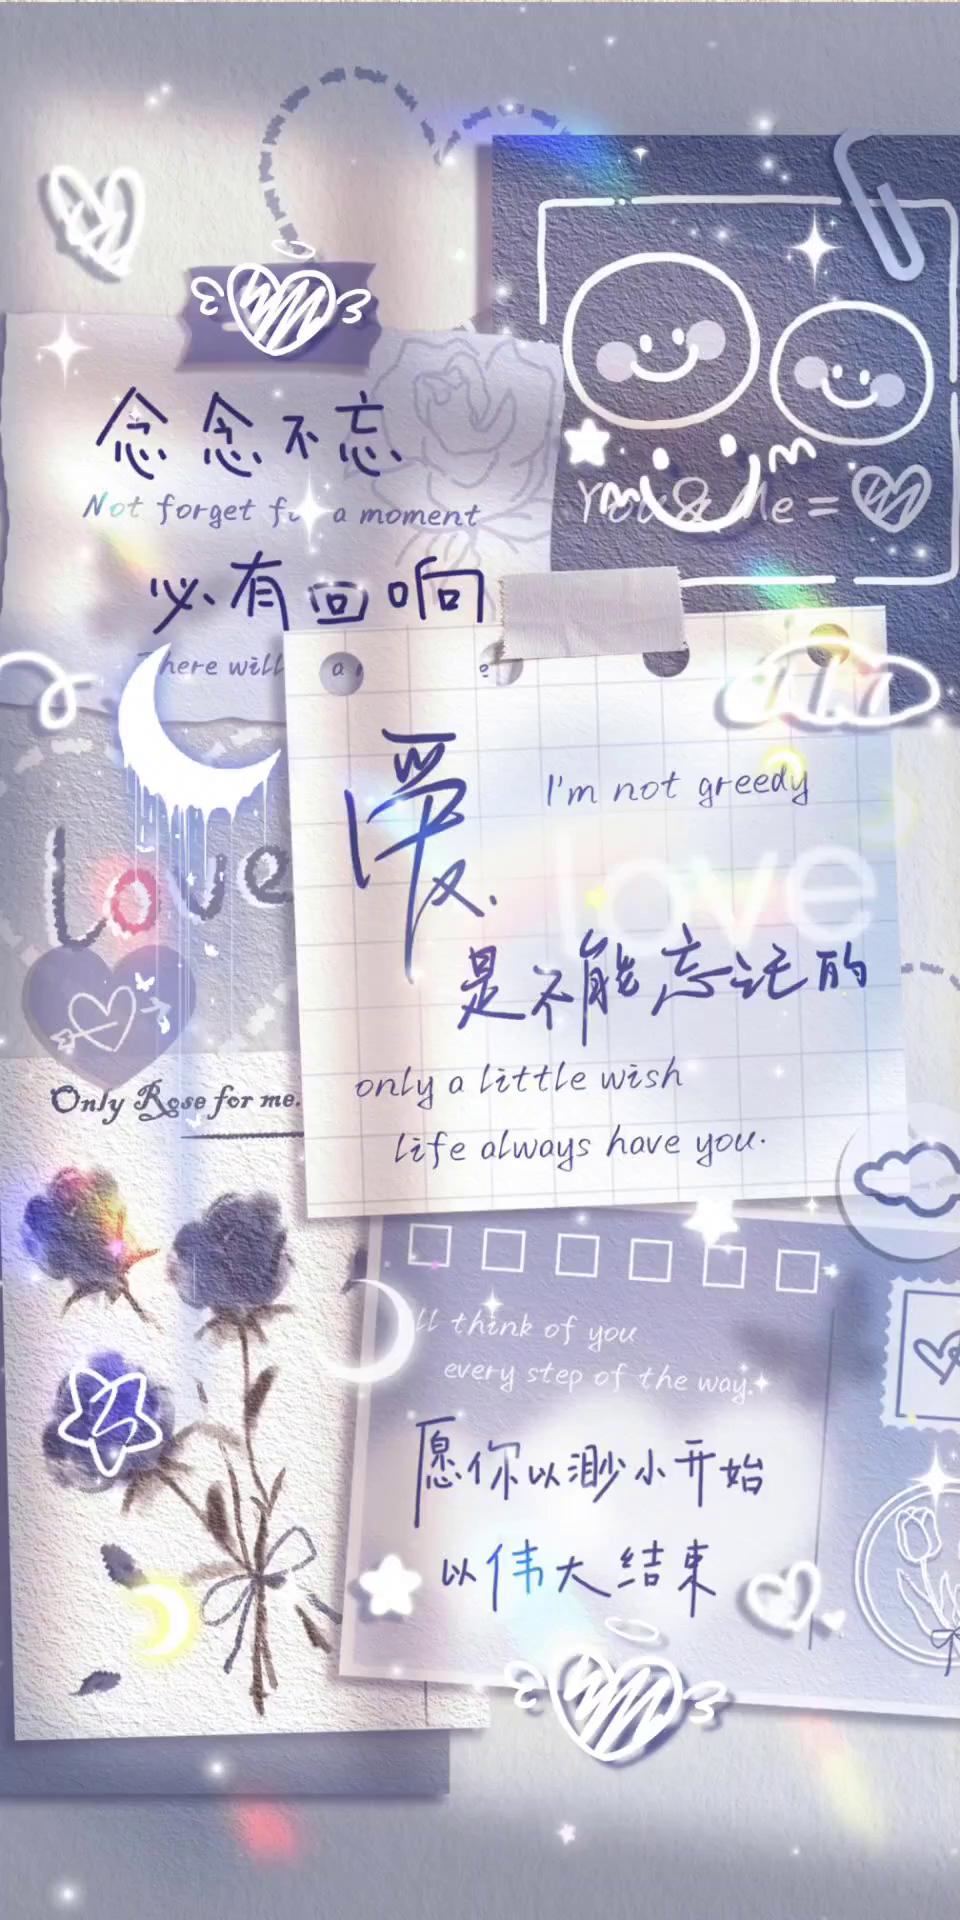 念念不忘
Not forget for a moment
You & Me =
必有回响
There will
爱
I'm not greedy
love
Love
是不能忘记的
only a little wish
Only Rose for me.
life always have you.
ll think of you
every step of the way.
愿你以渺小开始
以伟大结束